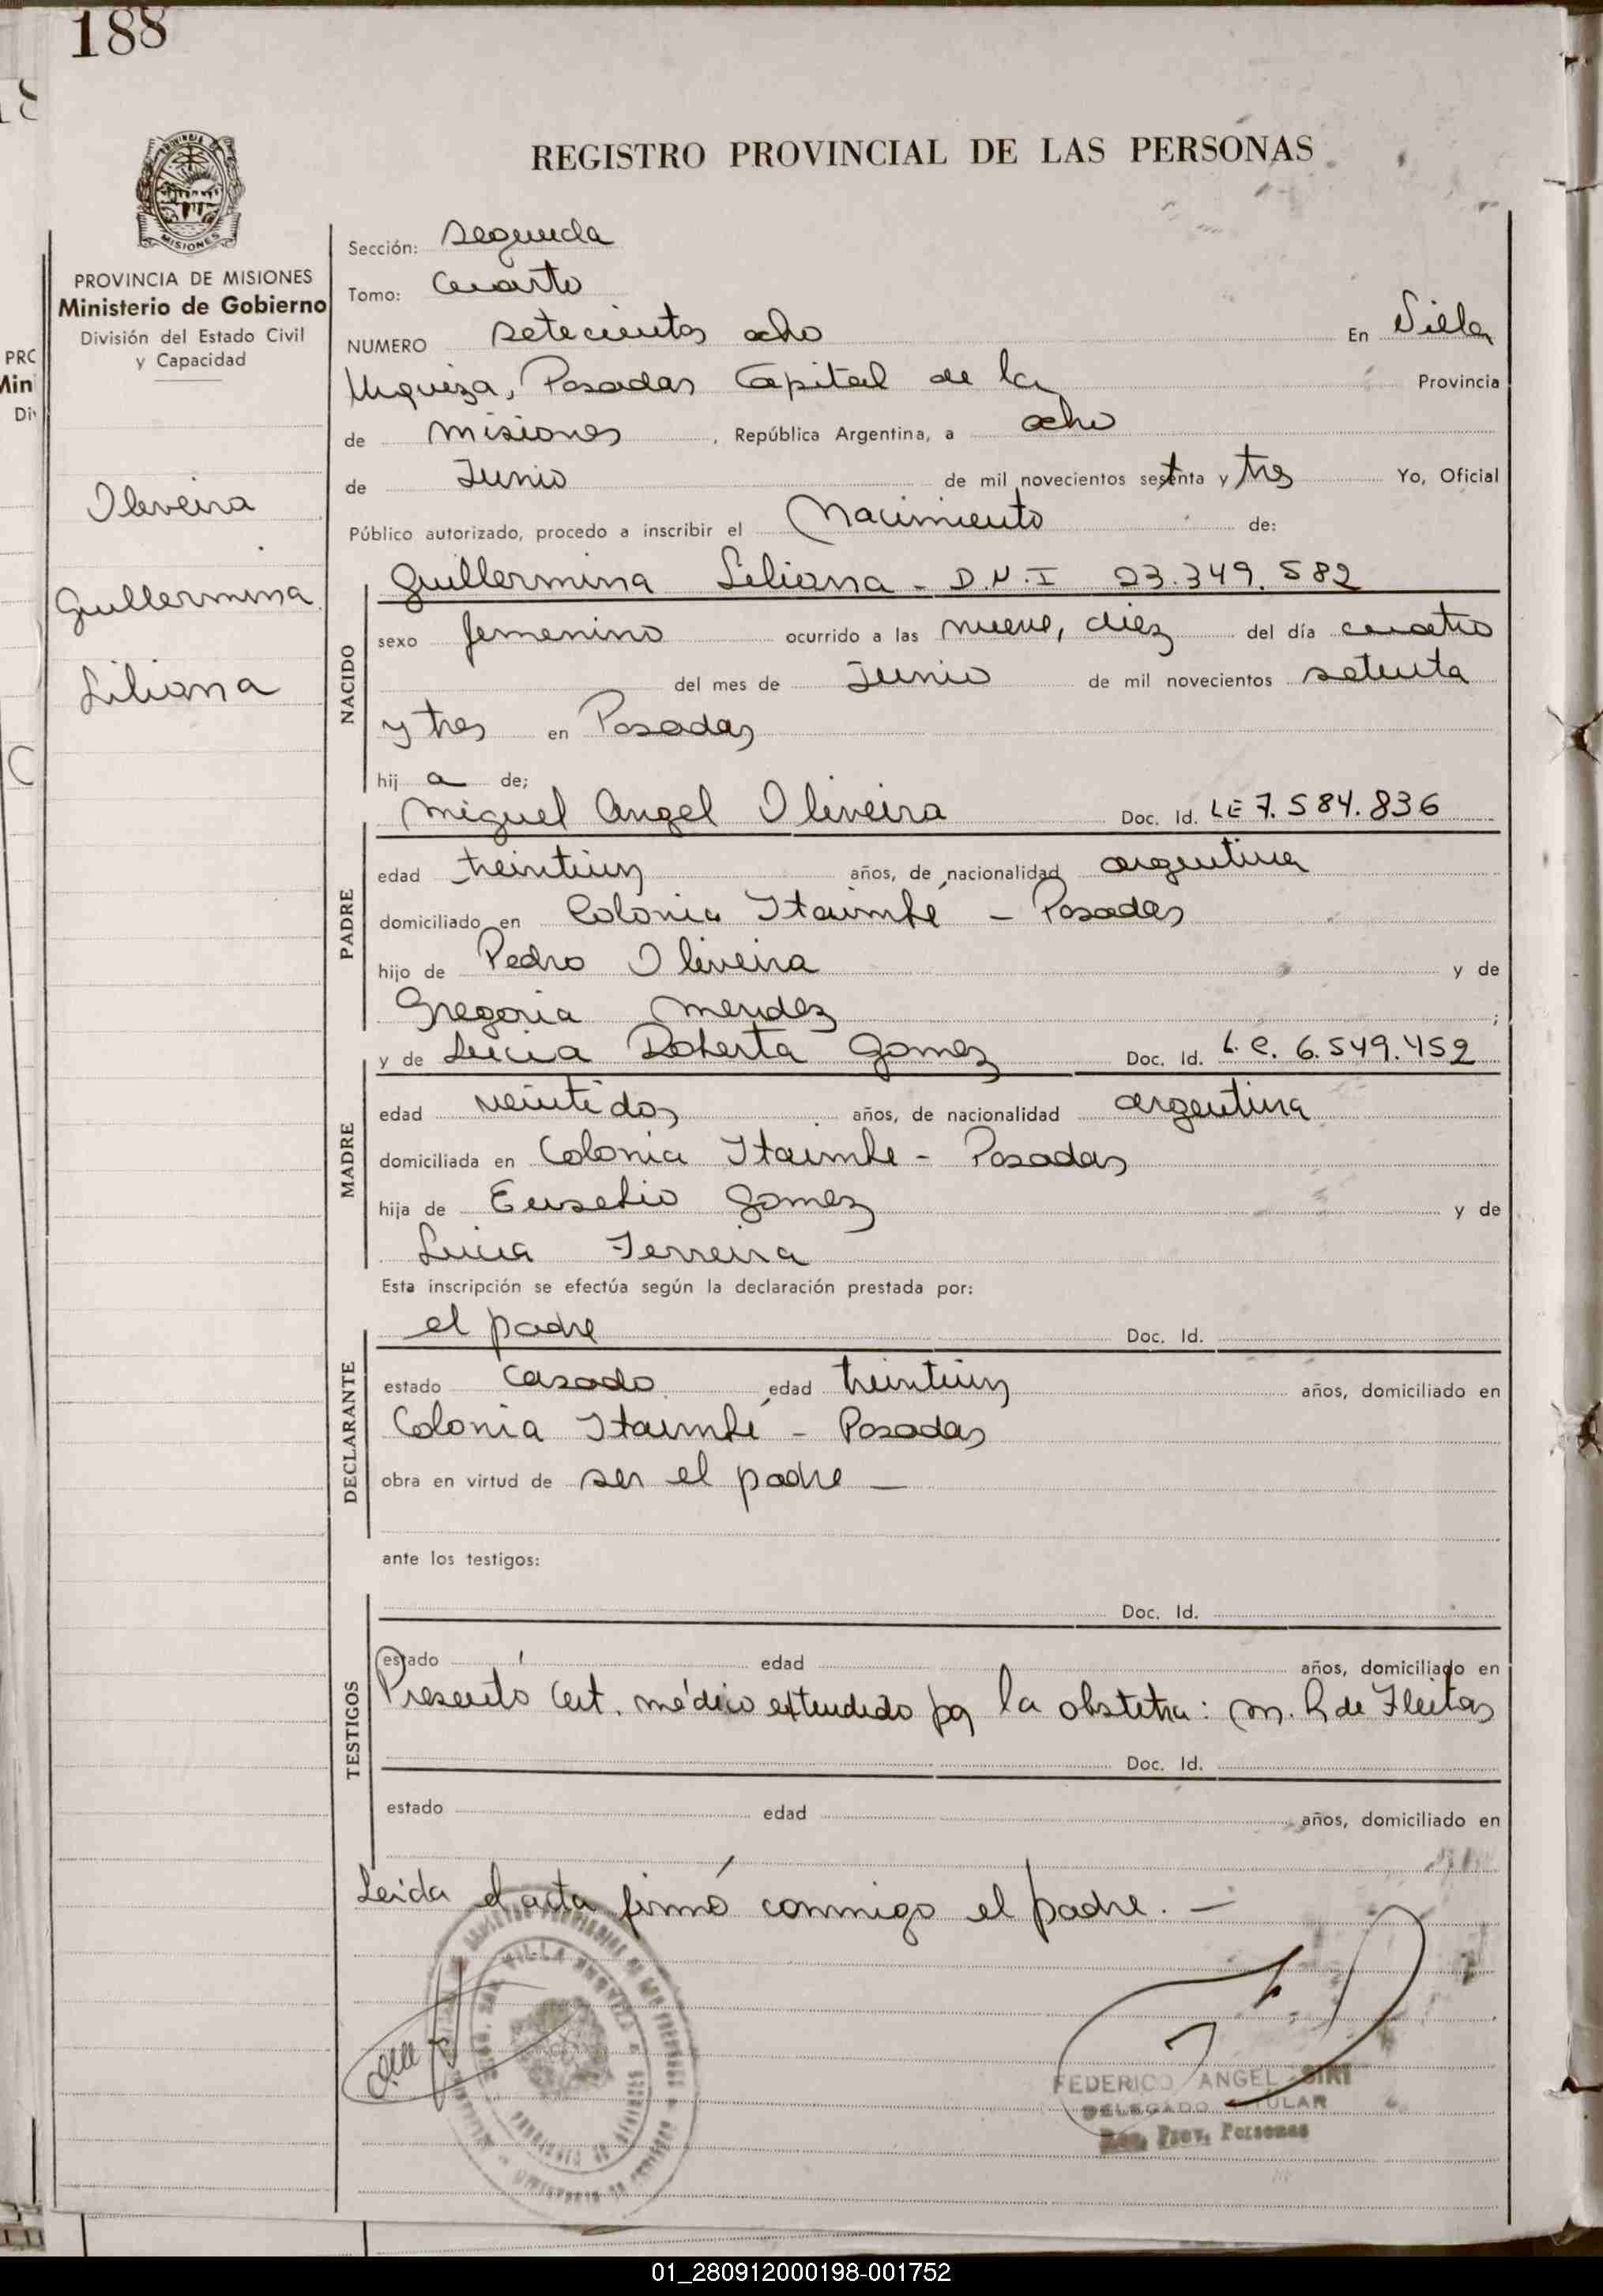 188
REGISTRO PROVINCIAL DE LAS PERSONAS
PROVINCIA DE MISIONES
Ministerio de Gobierno
División del Estado Civil
y Capacidad
Oliveira
Guillermina
Liliana
Sección: segunda
Tomo: Cuarto
NUMERO setecientos ocho En Villa
Urquiza, Posadas Capital de la Provincia
de misiones, República Argentina, a ocho
de Junio de mil novecientos setenta y tres Yo, Oficial
Público autorizado, procedo a inscribir el Nacimiento de:
NACIDO
Guillermina Liliana - D.N.I 23.349.582
sexo femenino ocurrido a las nueve, diez del día cuatro
del mes de Junio de mil novecientos setenta
y tres en Posadas
hij a de;
PADRE
Miguel Angel Oliveira Doc. Id. LE 7.584.836
edad treintiun años, de nacionalidad argentina
domiciliado en Colonia Itaimbé - Posadas
hijo de Pedro Oliveira y de
Gregoria Mendez ;
MADRE
y de Lucia Roberta Gomez Doc. Id. L.C. 6.549.452
edad veintidos años, de nacionalidad argentina
domiciliada en Colonia Itaimbe - Posadas
hija de Eusebio Gomez y de
Lucia Ferreira
Esta inscripción se efectúa según la declaración prestada por:
DECLARANTE
el padre Doc. Id.
estado casado edad treintiun años, domiciliado en
Colonia Itaimbé - Posadas
obra en virtud de ser el padre -
ante los testigos:
TESTIGOS
Doc. Id.
estado edad años, domiciliado en
Presentó Cert. médico extendido por la obstetra: M. R de Fleitas
Doc. Id.
estado edad años, domiciliado en
Leida el acta firmó conmigo el padre. -
FEDERICO ANGEL SIRI
DELEGADO TITULAR
Reg. Prov. Personas
01_280912000198-001752